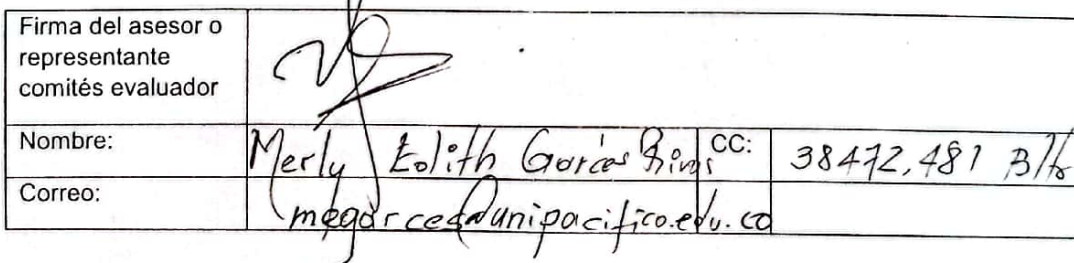 Firma del asesor o
representante
comités evaluador
Nombre: Merly Edith Garcés Rivas CC: 38472,481 B/tra
Correo: megarces@unipacifico.edu.co